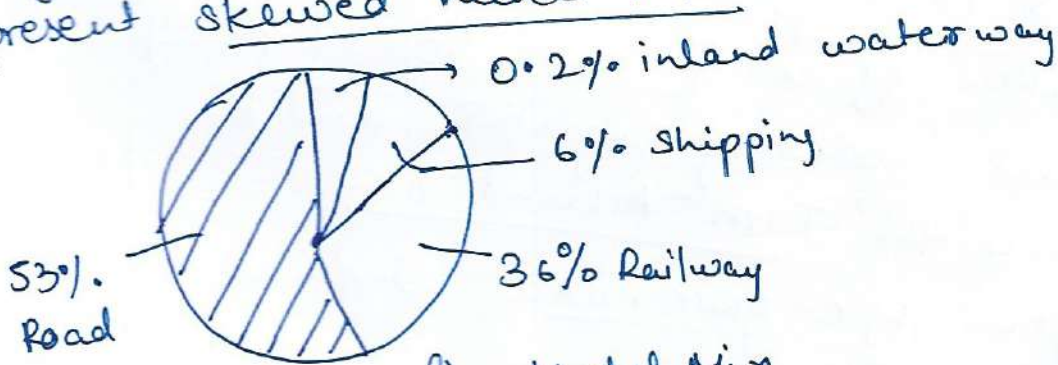 present skewed
0.2% inland waterway
6% Shipping
36% Railway
53%.
Road